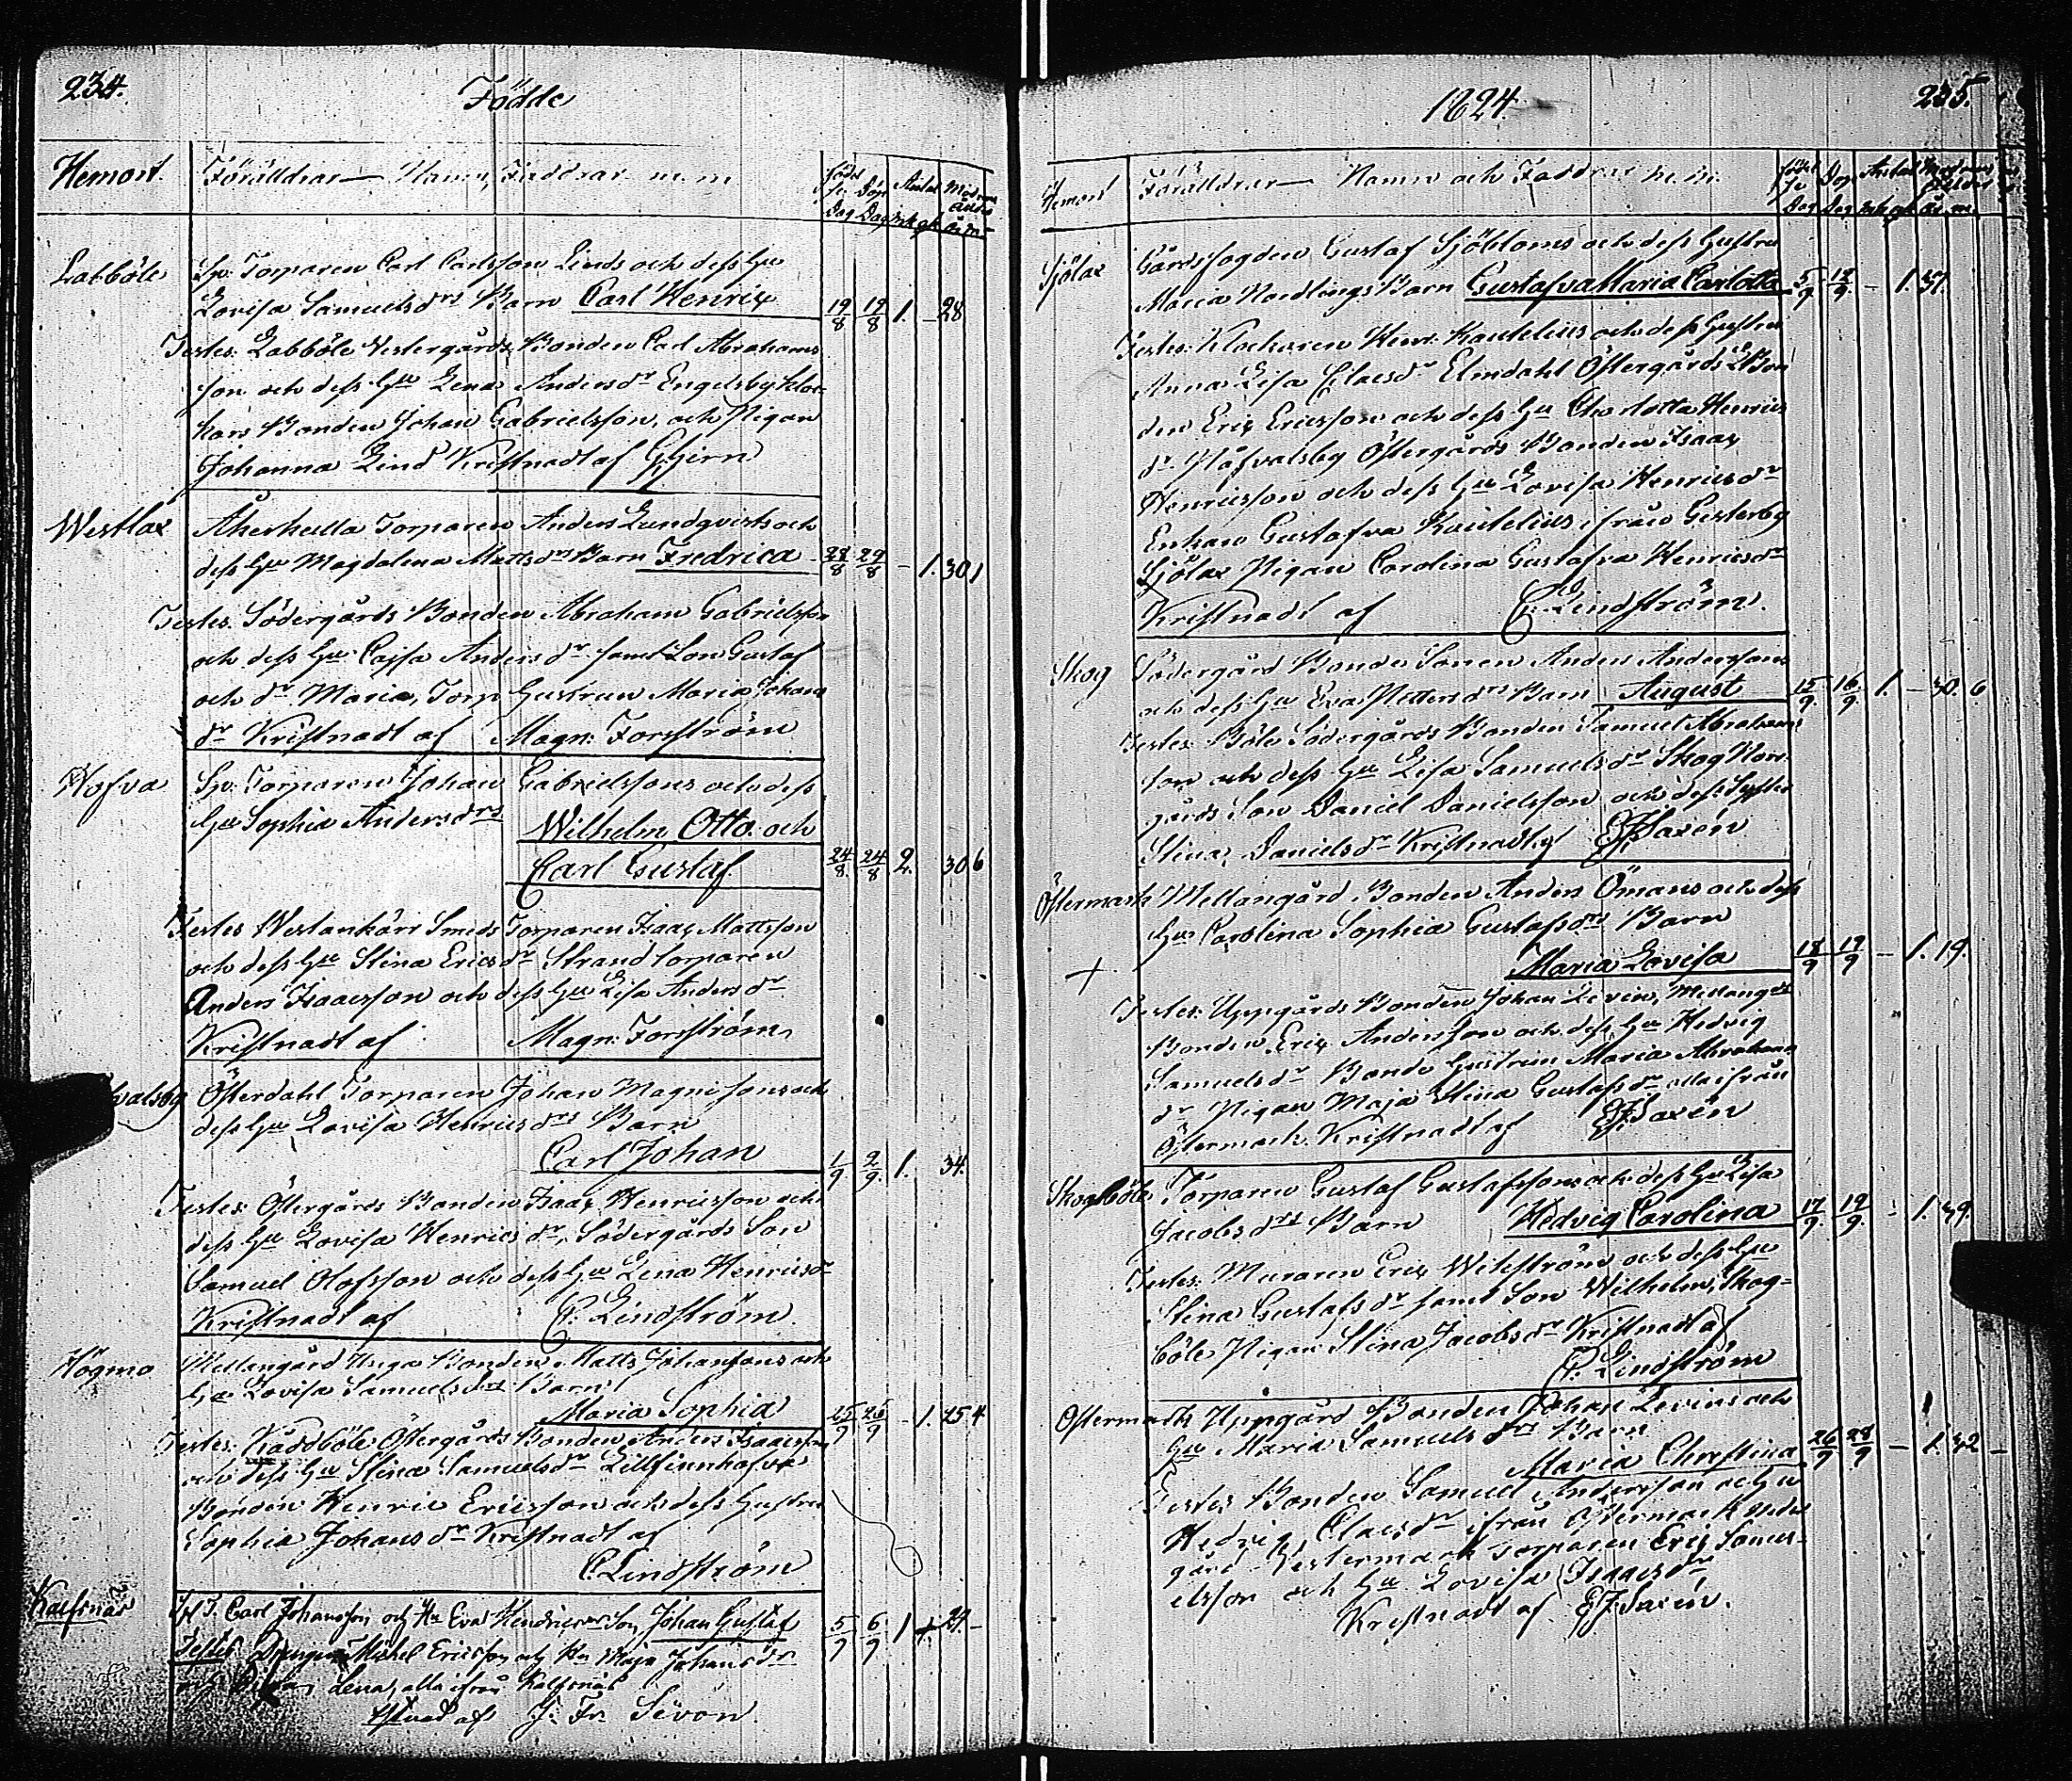 234.
Födde
Hemort. Förälldrar — Namn, Faddrar m. m
född
Dop
Antal
Dag Dag mk qk år m
Labböle Sp: Torparen Carl Carlsson Linds och dess Hu
Lovisa Samuelsdrs Barn Carl Henric 19/8 19/8 1. - 28
Testes: Labböle Westergårds Bonden Carl Abrahams
son och dess Hu Lena Andersdr Engelsby Kloc-
kars Bonden Johan Gabrielsson, och Pigan
Johanna Lind Kristnadt af
Westlax Åkerkulla Torparen Anders Lundqvists och
dess Hu Magdalena Mattsdrs Barn Fredrica 28/8 29/8 - 1. 30 1
Testes. Södergårds Bonden Abraham Gabrielsson
och dess Hu Cajsa Andersdr samt Son Gustaf
och dr Maria, Torp Hustrun Maria Johans
dr Kristnadt af Magn: Forsström
Hofva Sp: Torparen Johan Gabrielssons och dess
Hu Sophia Andersdrs Wilhelm Otto och
Carl Gustaf. 24/8 24/8 2. 30 6
Testes Westankärr Smeds Torparen Isaac Mattsson
och dess Hu Stina Ericsdr Strandtorparen
Anders Isaacsson och dess Hu Lisa Andersdr
Kristnadt af Magn: Forsström
valsby Österdahl Torparen Johan Magnissons och
dess Hu Lovisa Henricsdrs Barn
Carl Johan 1/9 2/9. 1. 34.
Testes: Östergårds Bonden Isaac Henricsson och
dess Hu Lovisa Henricsdr, Södergårds Son
Samuel Olofsson och dess Hu Lena Henricsdr
Kristnadt af C. Lindström.
Högmo Mellangård Unga Bonden Matts Johanssons och
Hu Lovisa Samuelsdrs Barn
Maria Sophia 25/9 26/9 - 1. 25 4
Testes: Kåddböle Östergårds Bonden Anders Isaacsson
och dess Hu Stina Samuelsdr Lillfinnhofva
Bonden Henric Ericsson och dess Hustru
Sophia Johansdr Kristnadt af
C. Lindström
Kalfsnäs Carl Johansson och Hu Eva Hendricsdr Son Johan Gustaf 5/9 6/9 1 24. -
Testes Drengen Michel Ericsson och Hu Maja Johansdr
och Lena, alla ifrån Kalfsnäs
af J. Fr. Sevon.
1824.
235.
Hemort Förälldrar — Namn och Faddrar m. m.
född Dop Antal
Dag Dag mk qk år m.
Sjölax Gårdsfogden Gustaf Sjöbloms och dess Hustru
Maria Nordlings Barn Gustafva Maria Carlotta 5/9 12/9. - 1. 37.
Testes: Klockaren Henr. Kautelius och dess Hustru
Anna Lisa Claesdr Elmdahl Östergårds Bon
den Eric Ericsson och dess Hu Charlotta Henrics
dr Håfvalsby Östergårds Bonden Isaac
Henricsson och dess Hu Lovisa Henricsdr
Enkan Gustafva Kautelius ifrån Gesterby
Sjölax Pigan Carolina Gustafva Henricsdr
Kristnadt af C. Lindström.
Skog Södergård Bonde Sonen Anders Anderssons
och dess Hu Eva Pettersdrs Barn August 15/9. 16/9. 1. - 30. 6
Testes: Böle Södergårds Bonden Samuel Abrahams
son och dess Hu Lisa Samuelsdr Skog Norr-
gårds Son Daniel Danielsson och dess Syster
Stina Danielsdr Kristnadt af Saxén
Östermark Mellangård Bonden Anders Ömans och dess
Hu Carolina Sophia Gustafsdrs Barn
+ Maria Lovisa 18/9 19/9 - 1. 19.
Testes: Uppgårds Bonden Johan Levin, Mellangds
Bonden Eric Andersson och dess Hu Hedvig
Samuelsdr Bonde Hustrun Maria Abrahams
dr Pigan Maja Stina Gustafsdr alla ifrån
Östermark. Kristnadt af Saxén
Skogsböle Torparen Gustaf Gustafssons och dess Hu Lisa
Jacobsdrs Barn Hedvig Carolina 17/9. 19/9. - 1. 39.
Testes: Muraren Eric Widström och dess Hu
Stina Gustafsdr samt Son Wilhelm, Skog-
böle Pigan Stina Jacobsdr Kristnadt af
C. Lindström
Östermark Uppgård Bonden Johan Levins och
Hu Maria Samuelsdrs Barn
Maria Christina 26/9 28/9 - 1. 32 -
Testes Bonden Samuel Andersson och Hu
Hedvig Claesdr ifrån Östermark Neder
gård Westermark Torparen Eric Samu-
elsson och Hu Lovisa Isaacsdr
Kristnadt af Saxén.